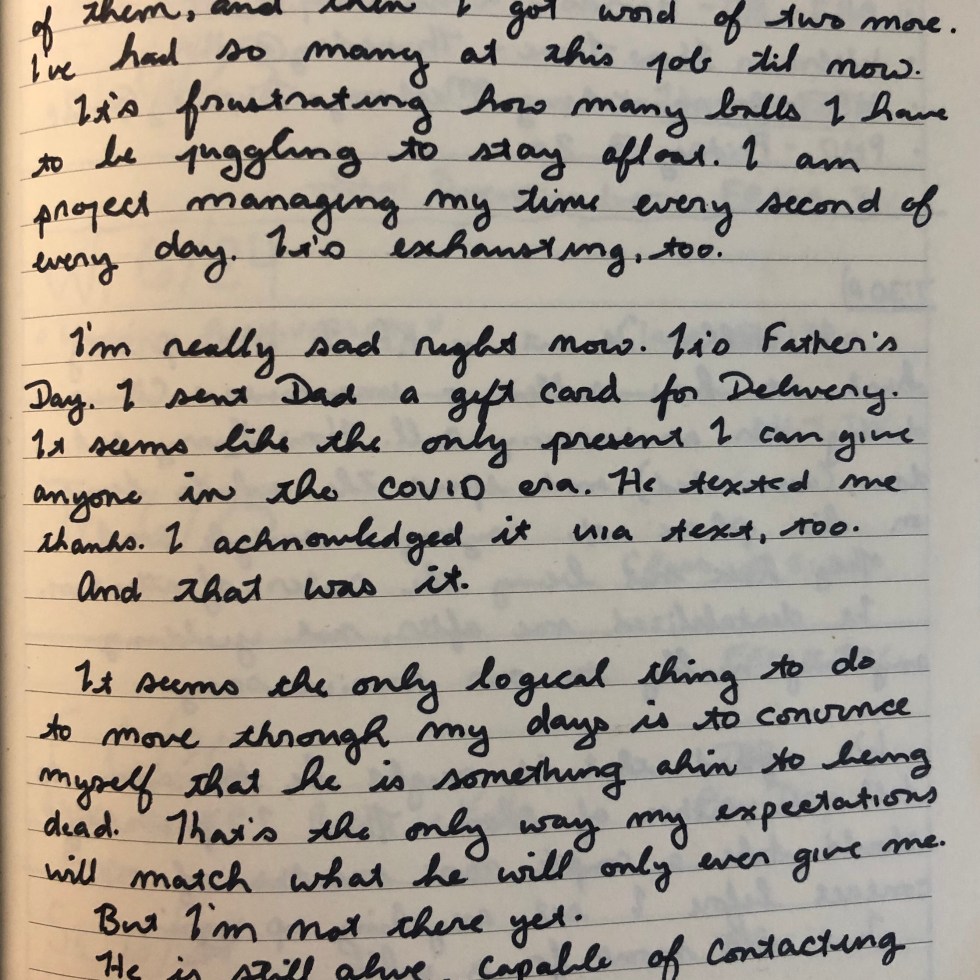 of them, and then I got word of two more.
I've had so many at this job til now.
It's frustrating how many balls I have
to be juggling to stay afloat. I am
project managing my time every second of
every day. It's exhausting, too.
I'm really sad right now. It's Father's
Day. I sent Dad a gift card for Delivery.
It seems like the only present I can give
anyone in the COVID era. He texted me
thanks. I acknowledged it via text, too.
And that was it.
It seems the only logical thing to do
to move through my days is to convince
myself that he is something akin to being
dead. That's the only way my expectations
will match what he will only ever give me.
But I'm not there yet.
He is still alive, capable of contacting